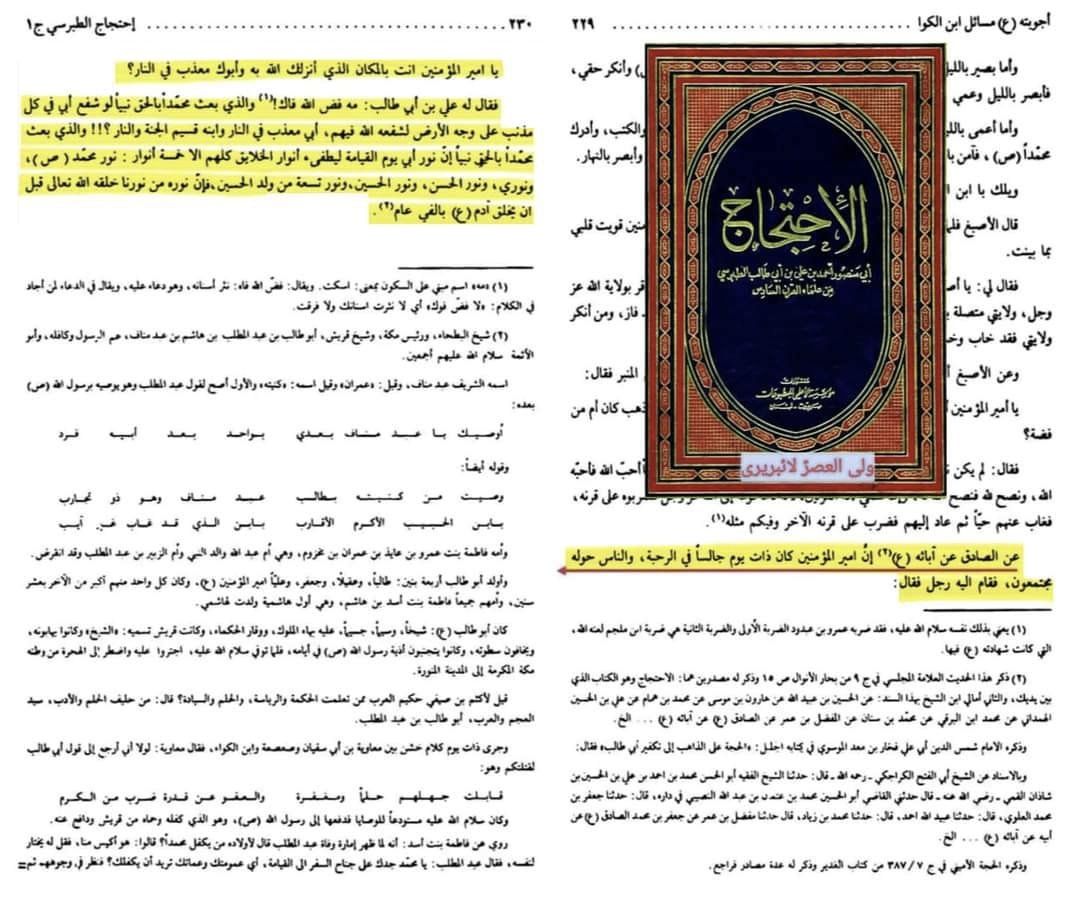 أجوبته (ع) مسائل ابن الكوا ... ٢٢٩
وأما بصير بالليل
) وأنكر حقي،
فأبصر بالليل وعمي
وأما أعمى بالليل
والكتب، وأدرك
محمّداً (ص) ، فآمن بالله
وأبصر بالنهار.
ويلك يا ابن ا
قال الأصبغ فلما
منين قويت قلبي
بما بينت.
فقال لي: يا أصبغ
قر بولاية الله عز
وجل، ولايتي متصلة ب
ـ فاز، ومن أنكر
ولايتي فقد خاب وخسر
وعن الأصبغ
المنبر فقال:
يا أمير المؤمنين أ
ذهب كان أم من
فضة؟
فقال: لم يكن ن
أحبّ الله فأحبّه
الله، ونصح لله فنصح الله
ضربوه على قرنه،
فغاب عنهم حيّاً ثم عاد إليهم فضرب على قرنه الآخر وفيكم مثله(١).
عن الصادق عن آبائه (ع)(٢) إنّ امير المؤمنين كان ذات يوم جالساً في الرحبة، والناس حوله
مجتمعون، فقام اليه رجل فقال:
(١) يعني بذلك نفسه سلام الله عليه، فقد ضربه عمرو بن عبدود الضربة الأولى والضربة الثانية هي ضربة ابن ملجم لعنه الله،
التي كانت شهادته (ع) فيها.
(٢) ذكر هذا الحديث العلامة المجلسي في ج ٩ من بحار الأنوال ص ١٥ وذكر له مصدرين هما: الاحتجاج وهو الكتاب الذي
بين يديك، والثاني أمالي ابن الشيخ بهذا السند: عن الحسين بن عبيد الله عن هارون بن موسى عن محمد بن همام عن علي بن الحسين
الهمداني عن محمد ابن البرقي عن محمّد بن سنان عن المفضل بن عمر عن الصادق (ع) عن آبائه (ع) ... الخ.
وذكره الامام شمس الدين أبي علي فخار بن معد الموسوي في كتابه الجليل: «الحجة على الذاهب إلى تكفير أبي طالب» فقال:
وبالاسناد عن الشيخ أبي الفتح الكراجكي ـ رحمه الله ـ قال: حدثنا الشيخ الفقيه أبو الحسن محمد بن احمد بن علي بن الحسين بن
شاذان القمي ـ رضي الله عنه ـ قال حدثني القاضي أبو الحسين محمد بن عثمان بن عبد الله النصيبي في داره، قال: حدثنا جعفر بن
محمد العلوي، قال: حدثنا عبيد الله احمد، قال: حدثنا محمد بن زياد، قال: حدثنا مفضل بن عمر عن جعفر بن محمد الصادق (ع) عن
أبيه عن آبائه (ع) ... الخ.
وذكره الحجة الأميني في ج ٧/ ٣٨٧ من كتاب الغدير وذكر له عدة مصادر فراجع.
الاحتجاج
أبي منصور أحمد بن علي بن أبي طالب الطبرسي
من علماء القرن السادس
منشورات
مؤسسة الأعلمي للمطبوعات
بيروت - لبنان
ولی العصرؑ لائبریری
٢٣٠ ... إحتجاج الطبرسي ج١
يا امير المؤمنين انت بالمكان الذي أنزلك الله به وأبوك معذب في النار؟
فقال له علي بن أبي طالب: مه فض الله فاك!(١) والذي بعث محمّداً بالحق نبياً لو شفع أبي في كل
مذنب على وجه الأرض لشفعه الله فيهم، أبي معذب في النار وابنه قسيم الجنة والنار ؟!! والذي بعث
محمّداً بالحق نبياً إنّ نور أبي يوم القيامة ليطفىء أنوار الخلايق كلهم الا خمسة أنوار : نور محمّد (ص)،
ونوري، ونور الحسن، ونور الحسين، ونور تسعة من ولد الحسين، فإنّ نوره من نورنا خلقه الله تعالى قبل
ان يخلق آدم (ع) بالفي عام(٢).
(١) «مه» اسم مبني على السكون بمعنى: اسكت. ويقال: فض الله فاه: نثر أسنانه، وهو دعاء عليه، ويقال في الدعاء لمن أجاد
في الكلام: «لا فضّ فوك» أي لا نثرت اسنانك ولا فرقت.
(٢) شيخ البطحاء، ورئيس مكة، وشيخ قريش، أبو طالب بن عبد المطلب بن هاشم بن عبد مناف، عم الرسول وكافله، وأبو
الأئمة سلام الله عليهم أجمعين.
اسمه الشريف عبد مناف، وقيل: «عمران» وقيل اسمه: «كنيته» والأول أصح لقول عبد المطلب وهو يوصيه برسول الله (ص)
بعده:
أوصيك يا عبد مناف بعدي بواحد بعد أبيه فرد
وقوله أيضاً:
وصيت من كنيته بطالب عبد مناف وهو ذو تجارب
بابن الحبيب الأكرم الأقارب بابن الذي قد غاب غير آيب
وأمه فاطمة بنت عمرو بن عايذ بن عمران بن مخزوم، وهي أم عبد الله والد النبي وأم الزبير بن عبد المطلب وقد انقرض.
وأولد أبو طالب أربعة بنين: طالباً، وعقيلاً، وجعفر، وعليّاً امير المؤمنين (ع)، وكان كل واحد منهم أكبر من الآخر بعشر
سنين، وامهم جميعاً فاطمة بنت أسد بن هاشم، وهي أول هاشمية ولدت لهاشمي.
كان أبو طالب (ع): شيخاً، وسيماً، جسيماً، عليه بهاء الملوك، ووقار الحكماء، وكانت قريش تسميه: «الشيخ» وكانوا يهابونه،
ويخافون سطوته، وكانوا يتجنبون أذية رسول الله (ص) في أيامه، فلما توفي سلام الله عليه، اجتروا عليه واضطر إلى الهجرة من وطنه
مكة المكرمة إلى المدينة المنورة.
قيل لأكثم بن صيفي حكيم العرب ممن تعلمت الحكمة والرياسة، والحلم والسيادة؟ قال: من حليف الحلم والأدب، سيد
العجم والعرب، أبو طالب بن عبد المطلب.
وجرى ذات يوم كلام خشن بين معاوية بن أبي سفيان وصعصعة وابن الكواء، فقال معاوية: لولا أني أرجع إلى قول أبي طالب
لقتلتكم وهو:
قابلت جهلهم حلماً ومغفرة والعفو عن قدرة ضرب من الكرم
وكان سلام الله عليه مستودعاً للوصايا فدفعها إلى رسول الله (ص)، وهو الذي كفله وحماه من قريش ودافع عنه.
روي عن فاطمة بنت أسد: أنه لما ظهر إمارة وفاة عبد المطلب قال لأولاده من يكفل محمداً؟ قالوا: هو أكيس منا، فقل له يختار
لنفسه، فقال عبد المطلب: يا محمّد جدك على جناح السفر الى القيامة، أي عمومتك وعماتك تريد أن يكفلك؟ فنظر في وجوههم ثم=